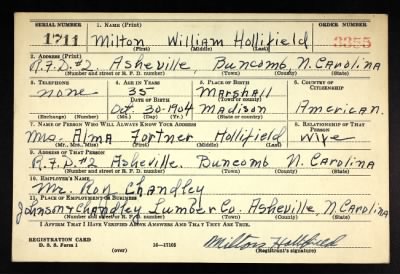 SERIAL NUMBER 1. NAME (Print) ORDER NUMBER
1711 Milton William Hollifield 3355
(First) (Middle) (Last)
2. ADDRESS (Print)
R.F.D.#2 Asheville, Buncomb N. Carolina
(Number and street or R. F. D. number) (Town) (County) (State)
3. TELEPHONE 4. AGE IN YEARS 5. PLACE OF BIRTH 6. COUNTRY OF CITIZENSHIP
none 35 Marshall
DATE OF BIRTH (Town or county)
Oct. 30-1904 Madison American.
(Exchange) (Number) (Mo.) (Day) (Yr.) (State or country)
7. NAME OF PERSON WHO WILL ALWAYS KNOW YOUR ADDRESS 8. RELATIONSHIP OF THAT PERSON
Mrs. Alma Fortner Hollifield Wife
(Mr., Mrs., Miss) (First) (Middle) (Last)
9. ADDRESS OF THAT PERSON
R.F.D.#2 Asheville, Buncomb N. Carolina
(Number and street or R. F. D. number) (Town) (County) (State)
10. EMPLOYER'S NAME
Mr. Ron Chandley
11. PLACE OF EMPLOYMENT OR BUSINESS
Johnson & Chandley Lumber Co. Asheville, N. Carolina
(Number and street or R. F. D. number) (Town) (County) (State)
I AFFIRM THAT I HAVE VERIFIED ABOVE ANSWERS AND THAT THEY ARE TRUE.
REGISTRATION CARD Milton Hollifield
D. S. S. Form 1 (over) 16—17105 (Registrant's signature)